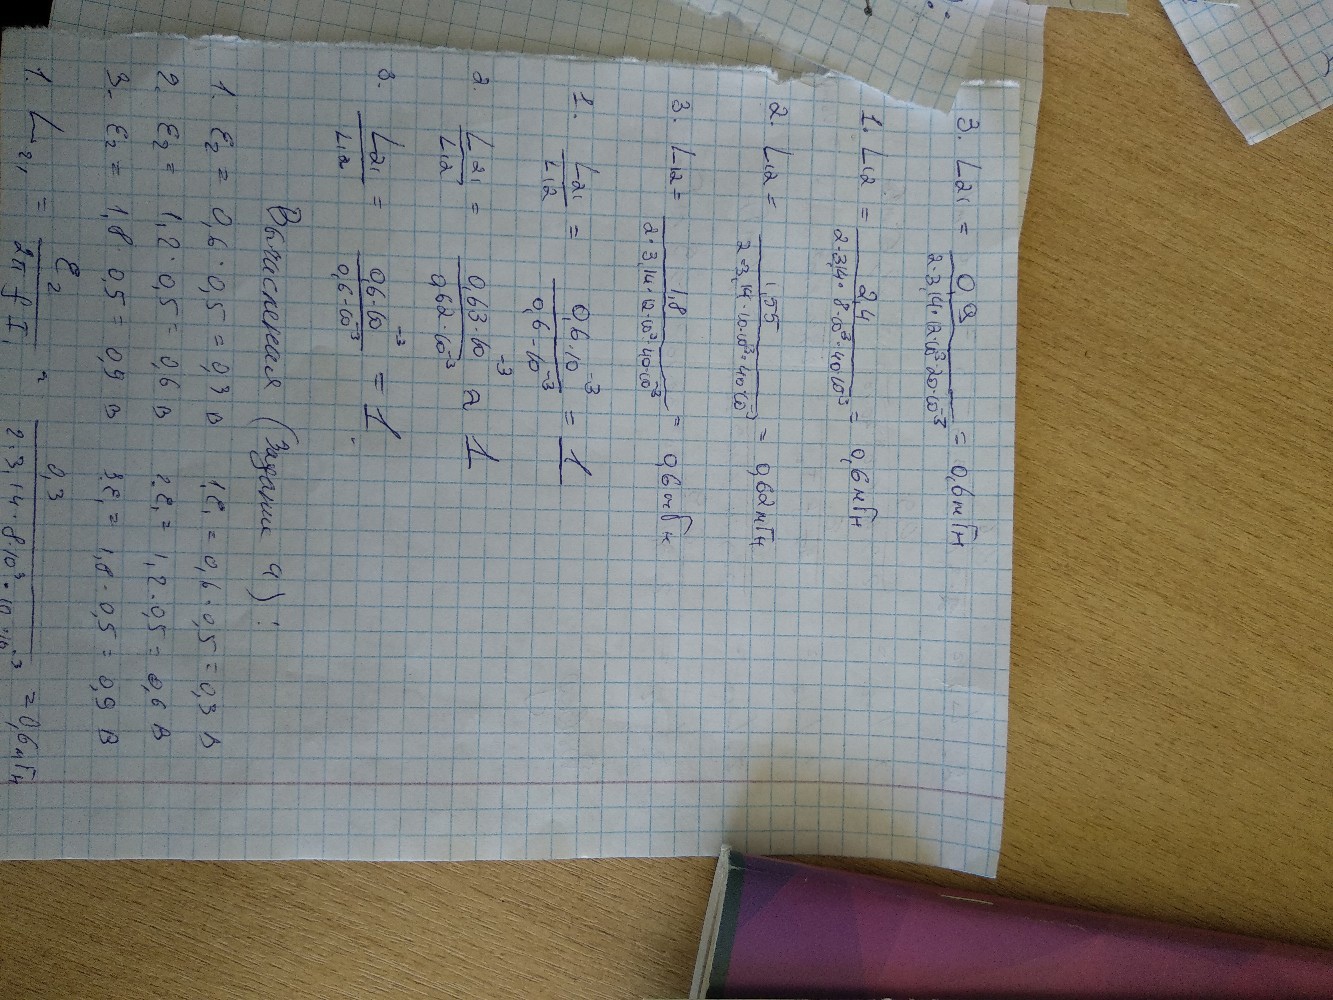 3. L21 = 0,9 / 2·3,14·12·10³·20·10⁻³ = 0,6 мГн
1. L12 = 2,4 / 2·3,14·8·10³·40·10⁻³ = 0,6 мГн
2. L12 = 1,55 / 2·3,14·10·10³·40·10⁻³ = 0,62 мГн
3. L12 = 1,8 / 2·3,14·12·10³·40·10⁻³ = 0,6 мГн
1. L21 / L12 = 0,6·10⁻³ / 0,6·10⁻³ = 1
2. L21 / L12 = 0,63·10⁻³ / 0,62·10⁻³ ≈ 1
3. L21 / L12 = 0,6·10⁻³ / 0,6·10⁻³ = 1.
Вычисления (Задание 4):
1. ℰ2 = 0,6·0,5 = 0,3 В 1. ℰ1 = 0,6·0,5 = 0,3 В
2. ℰ2 = 1,2·0,5 = 0,6 В 2. ℰ1 = 1,2·0,5 = 0,6 В
3. ℰ2 = 1,8·0,5 = 0,9 В 3. ℰ1 = 1,8·0,5 = 0,9 В
1. L21 = ℰ2 / 2π f I1 = 0,3 / 2·3,14·8·10³·10·10⁻³ = 0,6 мГн